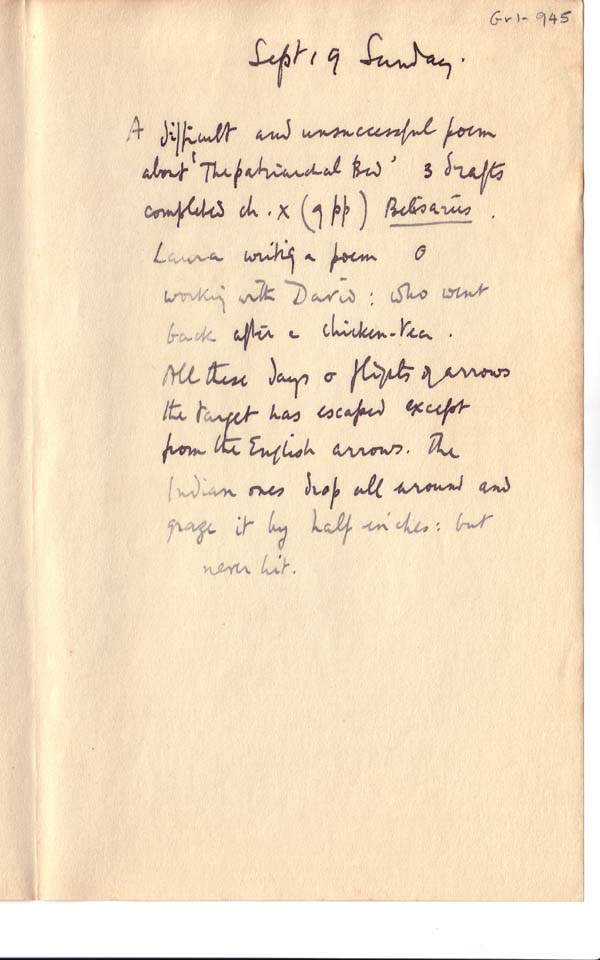 Gr1-945
Sept 19 Sunday.
A difficult and unsuccessful poem
about 'The patriarchal Bed' 3 drafts
completed ch. X (9 pp) Belisarius.
Laura writing a poem &
working with David: who went
back after a chicken-tea.
All these days & flights of arrows
the target has escaped except
from the English arrows. The
Indian ones drop all around and
graze it by half inches: but
never hit.